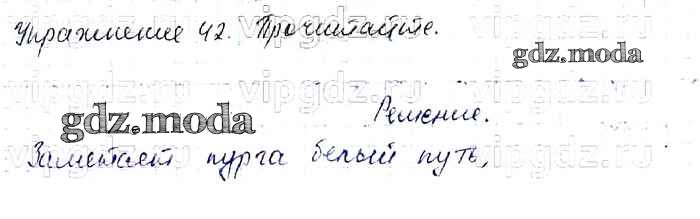 Упражнение 42. Прочитайте.
gdz.moda
Решение.
gdz.moda
Заметает пурга белый путь,